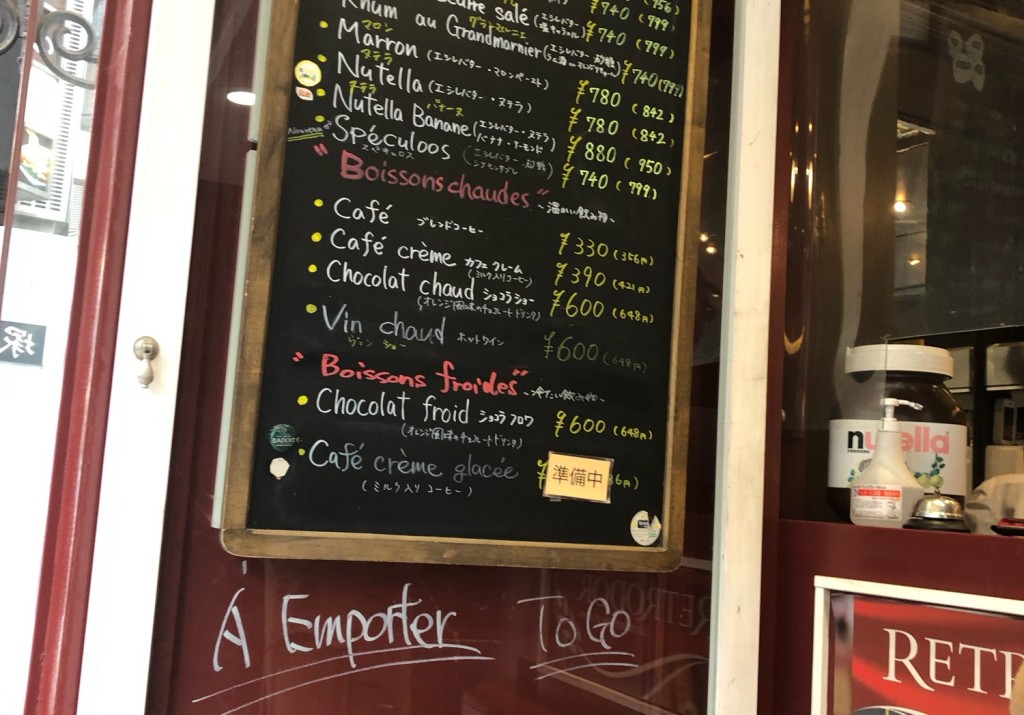 salé
¥740 (799)
Rhum au Grandmarnier
¥740 (799)
マロン
Marron (エシレバター・マロンペースト) ¥780 (842)
ヌテラ
Nutella (エシレバター・ヌテラ) ¥780 (842)
ヌテラ バナーヌ
Nutella Banane (エシレバター・ヌテラ バナナ・アーモンド) ¥880 (950)
Nouveau
Spéculoos ¥740 (799)
"Boissons chaudes" ~温かい飲み物~
Café ブレンドコーヒー ¥330 (356円)
Café crème カフェ クレーム (ミルク入りコーヒー) ¥390 (421円)
Chocolat chaud ショコラ ショー ¥600 (648円)
(オレンジ風味のチョコレートドリンク)
Vin chaud ホットワイン ¥600 (648円)
ヴァン ショー
"Boissons froides" ~冷たい飲み物~
Chocolat froid ショコラ フロワ ¥600 (648円)
(オレンジ風味のチョコレートドリンク)
Café crème glacée ¥ 準備中 6円)
(ミルク入りコーヒー)
À Emporter To Go
nutella
RETR
塚